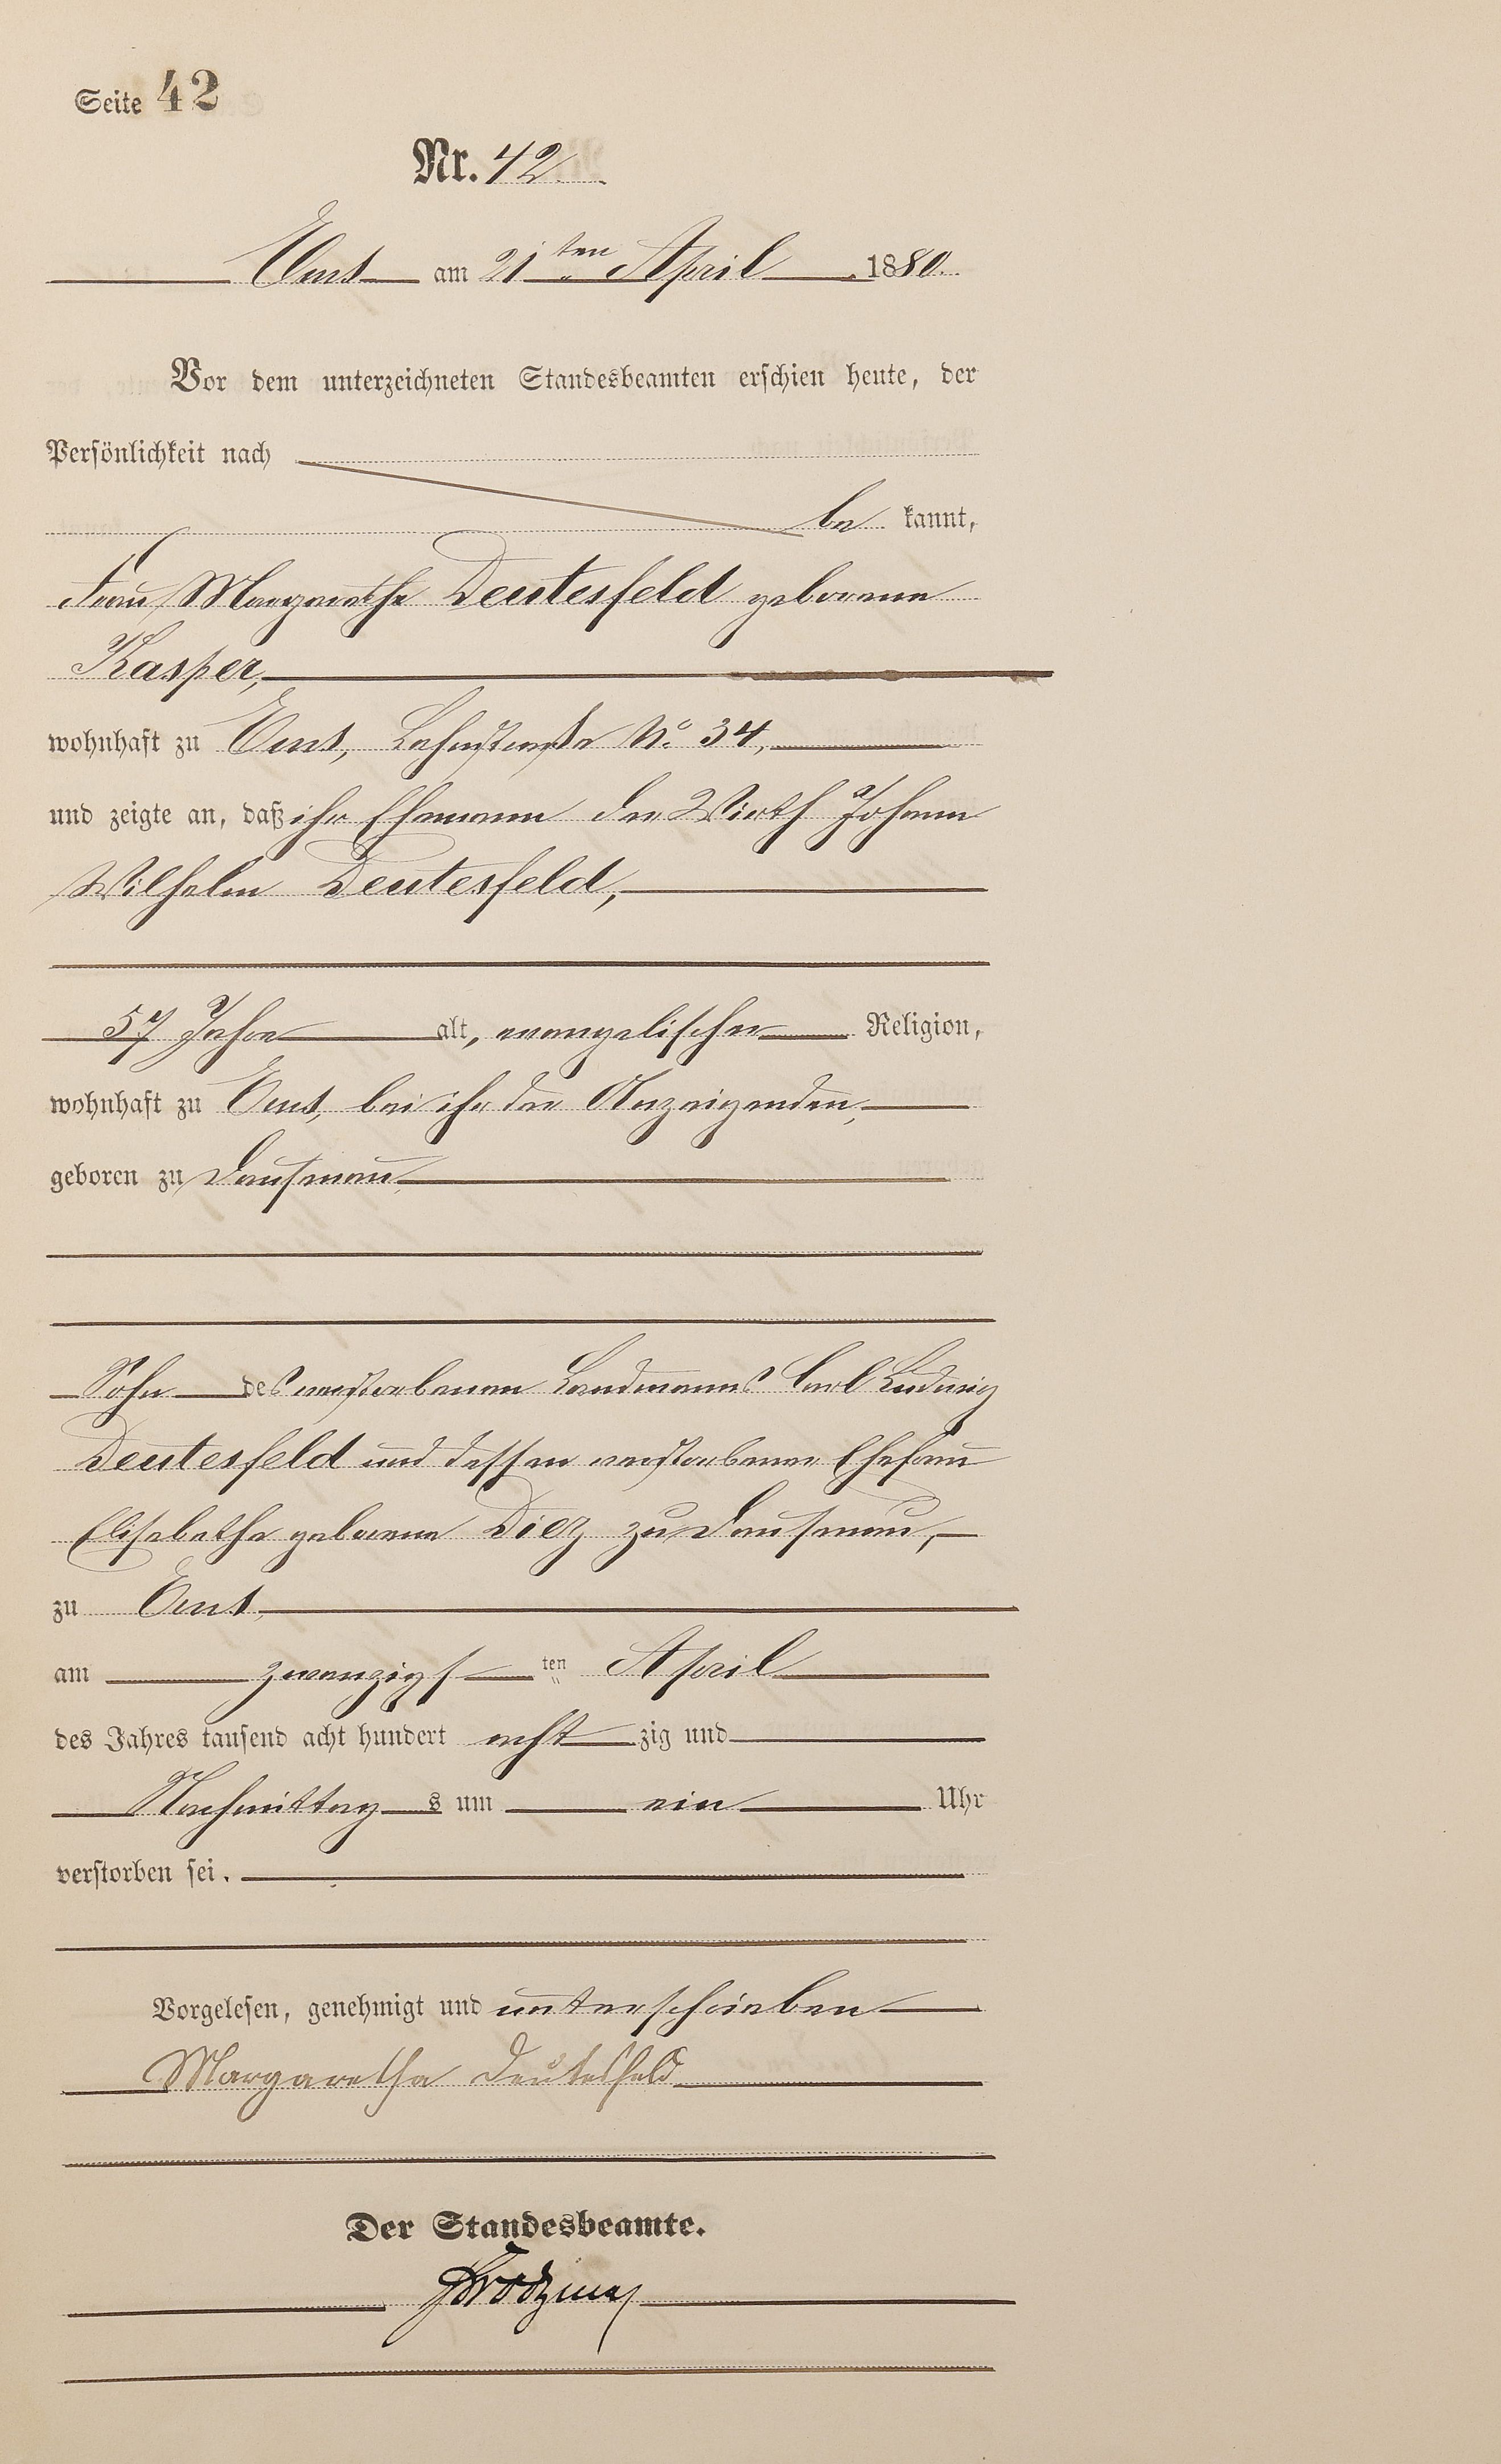 Seite 42
Nr. 42
Ems am 21ten April 1880.
Vor dem unterzeichneten Standesbeamten erschien heute, der
Persönlichkeit nach
be kannt,
Frau Margarethe Deutesfeld geborene
Kasper,
wohnhaft zu Ems, Lahnstraße No. 34,
und zeigte an, daß ihr Ehemann der Wirth Johann
Wilhelm Deutesfeld,
57 Jahre alt, evangelischer Religion,
wohnhaft zu Ems, bei ihr der Anzeigenden,
geboren zu Dausenau
Sohn des verstorbenen Landmanns Carl Ludwig
Deutesfeld und dessen verstorbener Ehefrau
Elisabethe geborene Diez zu Dausenau,
zu Ems,
am zwanzigs ten April
des Jahres tausend acht hundert acht zig und
Nachmittag s um ein Uhr
verstorben sei.
Vorgelesen, genehmigt und unterschrieben
Margaretha Deutesfeld
Der Standesbeamte.